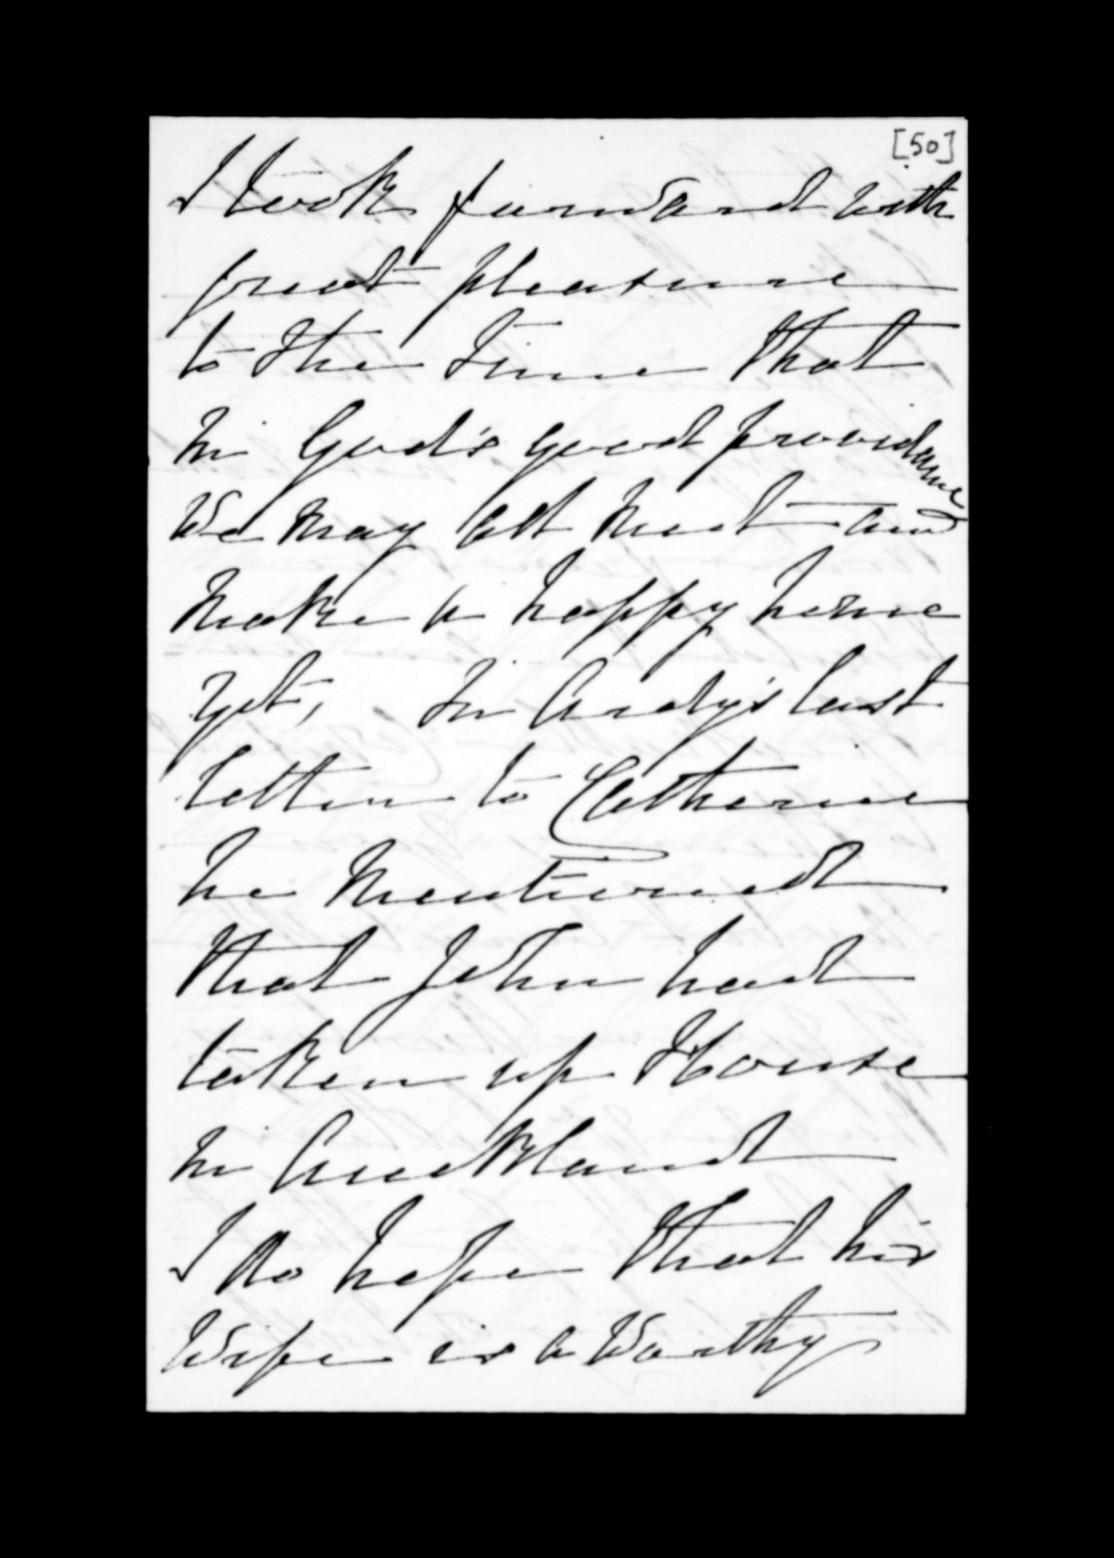 [50]
I look forward with
great pleasure
to the time that
in God's good providance
we may all meet and
make a happy home
yet, In Andy's last
letter to Catherine
he mentioned
that John had
taken up House
in Auckland
I do hope that his
Wife is a Worthy